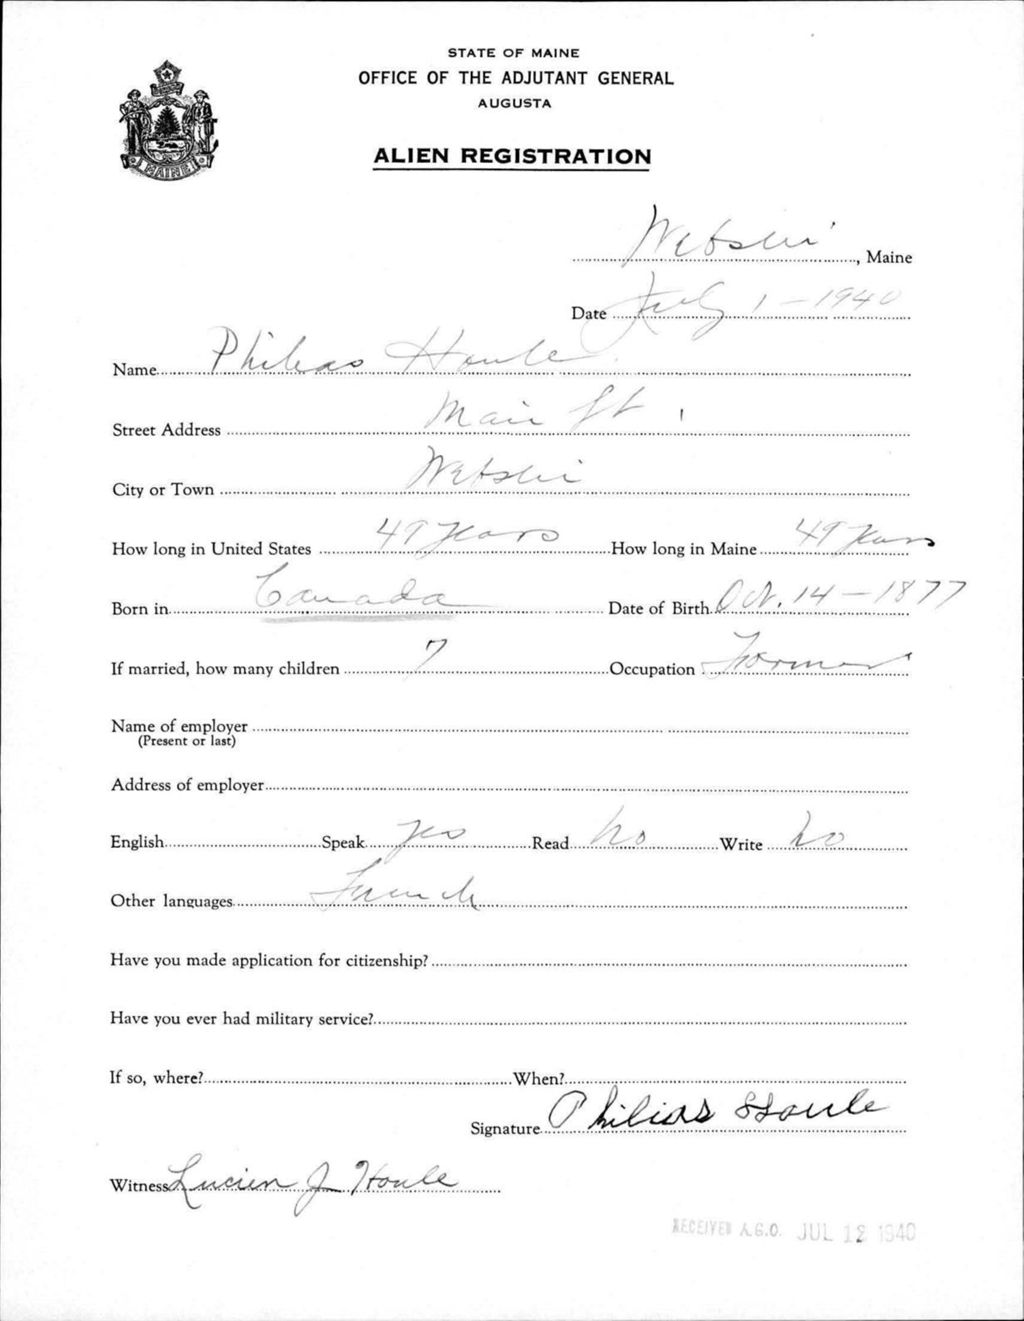 STATE OF MAINE
OFFICE OF THE ADJUTANT GENERAL
AUGUSTA
ALIEN REGISTRATION
MAINE
Webster, Maine
Date July 1 - 1940
Name Phileas Houle
Street Address Main St
City or Town Webster
How long in United States 49 Years How long in Maine 49 Years
Born in Canada Date of Birth Oct. 14 - 1877
If married, how many children 7 Occupation Farmer
Name of employer
(Present or last)
Address of employer
English Speak yes Read no Write no
Other languages French
Have you made application for citizenship?
Have you ever had military service?
If so, where? When?
Signature Philias Houle
Witness Lucien J Houle
RECEIVED A.G.O. JUL 12 1940